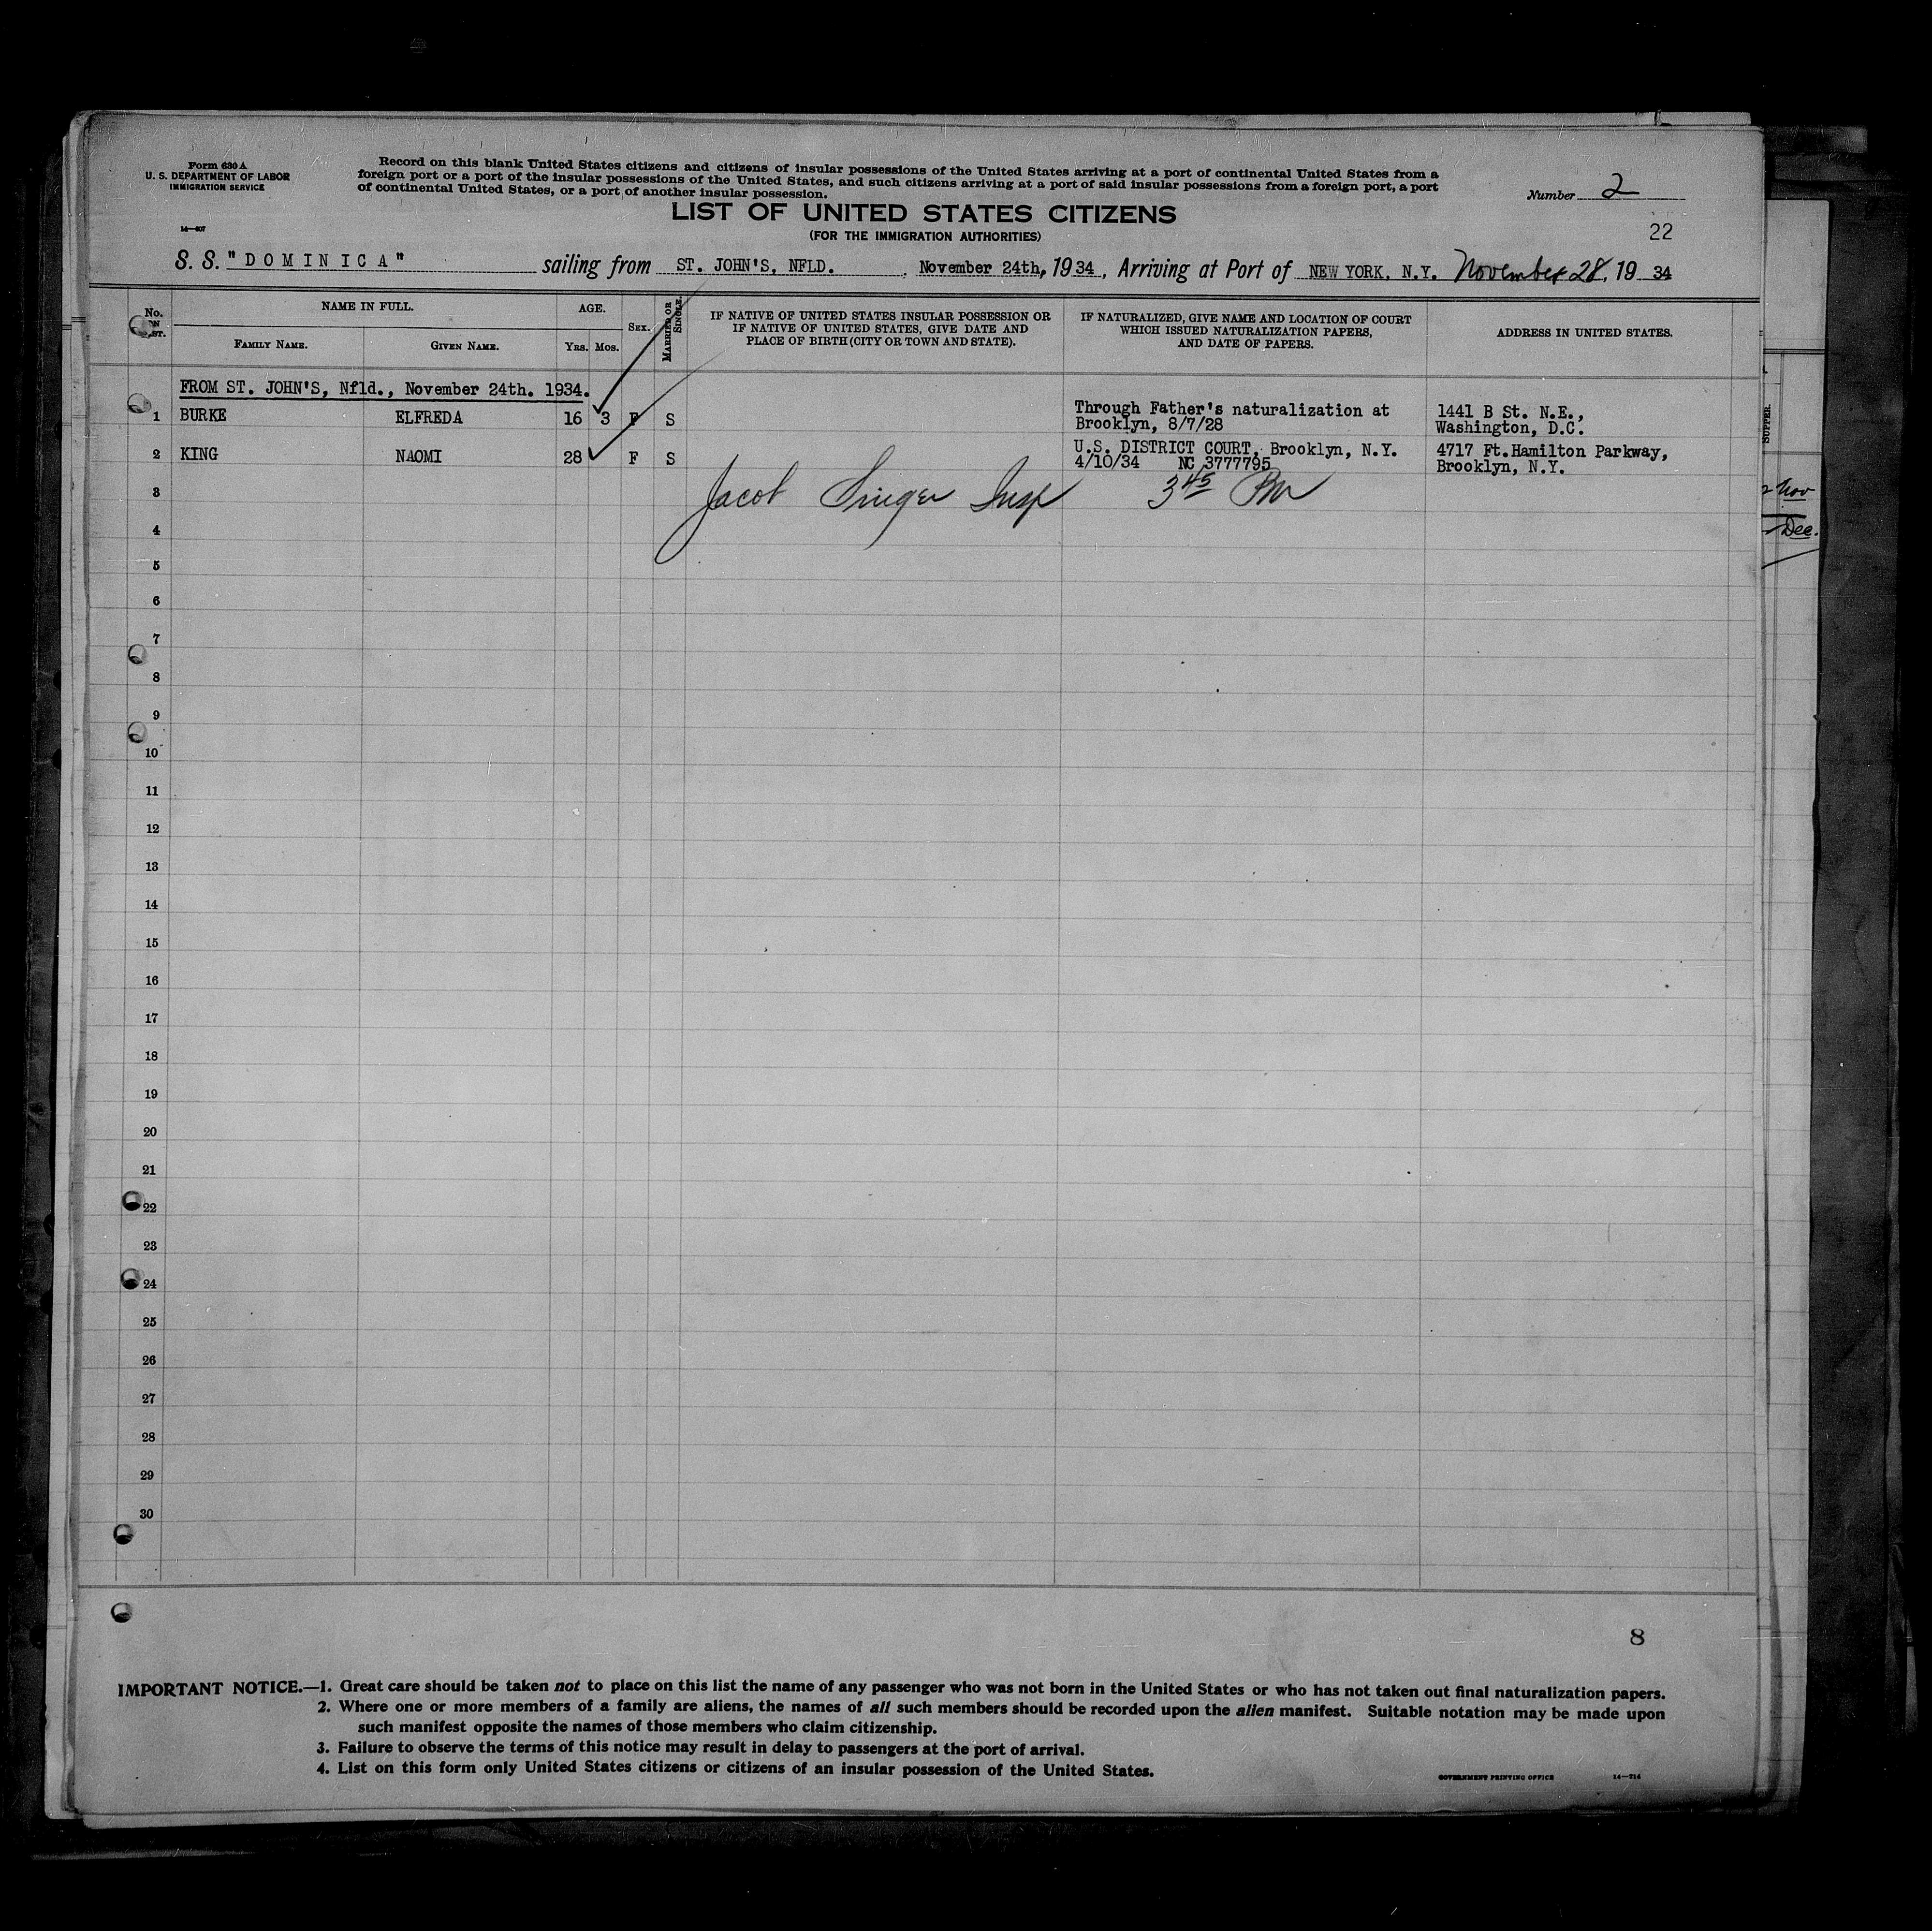 Form 630 A
U. S. DEPARTMENT OF LABOR
IMMIGRATION SERVICE
14—607
Record on this blank United States citizens and citizens of insular possessions of the United States arriving at a port of continental United States from a
foreign port or a port of the insular possessions of the United States, and such citizens arriving at a port of said insular possessions from a foreign port, a port
of continental United States, or a port of another insular possession.
Number 2
LIST OF UNITED STATES CITIZENS
(FOR THE IMMIGRATION AUTHORITIES)
22
S. S. "DOMINICA" sailing from ST. JOHN'S, NFLD. , November 24th, 1934, Arriving at Port of NEW YORK, N.Y. November 28, 19 34
No. ON LIST.
NAME IN FULL.
FAMILY NAME.
GIVEN NAME.
AGE.
YRS. MOS.
SEX.
MARRIED OR SINGLE.
IF NATIVE OF UNITED STATES INSULAR POSSESSION OR
IF NATIVE OF UNITED STATES, GIVE DATE AND
PLACE OF BIRTH (CITY OR TOWN AND STATE).
IF NATURALIZED, GIVE NAME AND LOCATION OF COURT
WHICH ISSUED NATURALIZATION PAPERS,
AND DATE OF PAPERS.
ADDRESS IN UNITED STATES.
FROM ST. JOHN'S, Nfld., November 24th. 1934.
1 BURKE ELFREDA 16 3 F S Through Father's naturalization at 1441 B St. N.E.,
Brooklyn, 8/7/28 Washington, D.C.
2 KING NAOMI 28 F S U.S. DISTRICT COURT, Brooklyn, N.Y. 4717 Ft.Hamilton Parkway,
4/10/34 NC 3777795 Brooklyn, N.Y.
3 Jacob Singer Insp 3 45 PM
4
5
6
7
8
9
10
11
12
13
14
15
16
17
18
19
20
21
22
23
24
25
26
27
28
29
30
SUPPER.
Nov
Dec.
8
IMPORTANT NOTICE.—1. Great care should be taken not to place on this list the name of any passenger who was not born in the United States or who has not taken out final naturalization papers.
2. Where one or more members of a family are aliens, the names of all such members should be recorded upon the alien manifest. Suitable notation may be made upon
such manifest opposite the names of those members who claim citizenship.
3. Failure to observe the terms of this notice may result in delay to passengers at the port of arrival.
4. List on this form only United States citizens or citizens of an insular possession of the United States.
GOVERNMENT PRINTING OFFICE 14—214